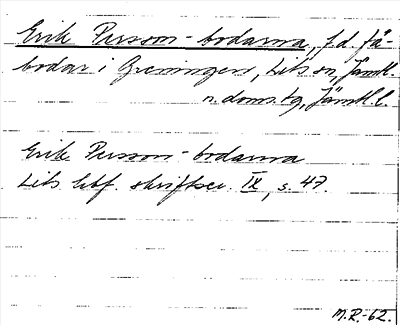 Erik Persson-bodarna, f.d. fä-
bodar i Greningen, Lits sn, Jämtl.
n. doms. tg, Jämtl. l.
Erik Persson-bodarna
Lits hbf. skriftser. IX, s. 47.
M.R.-62.